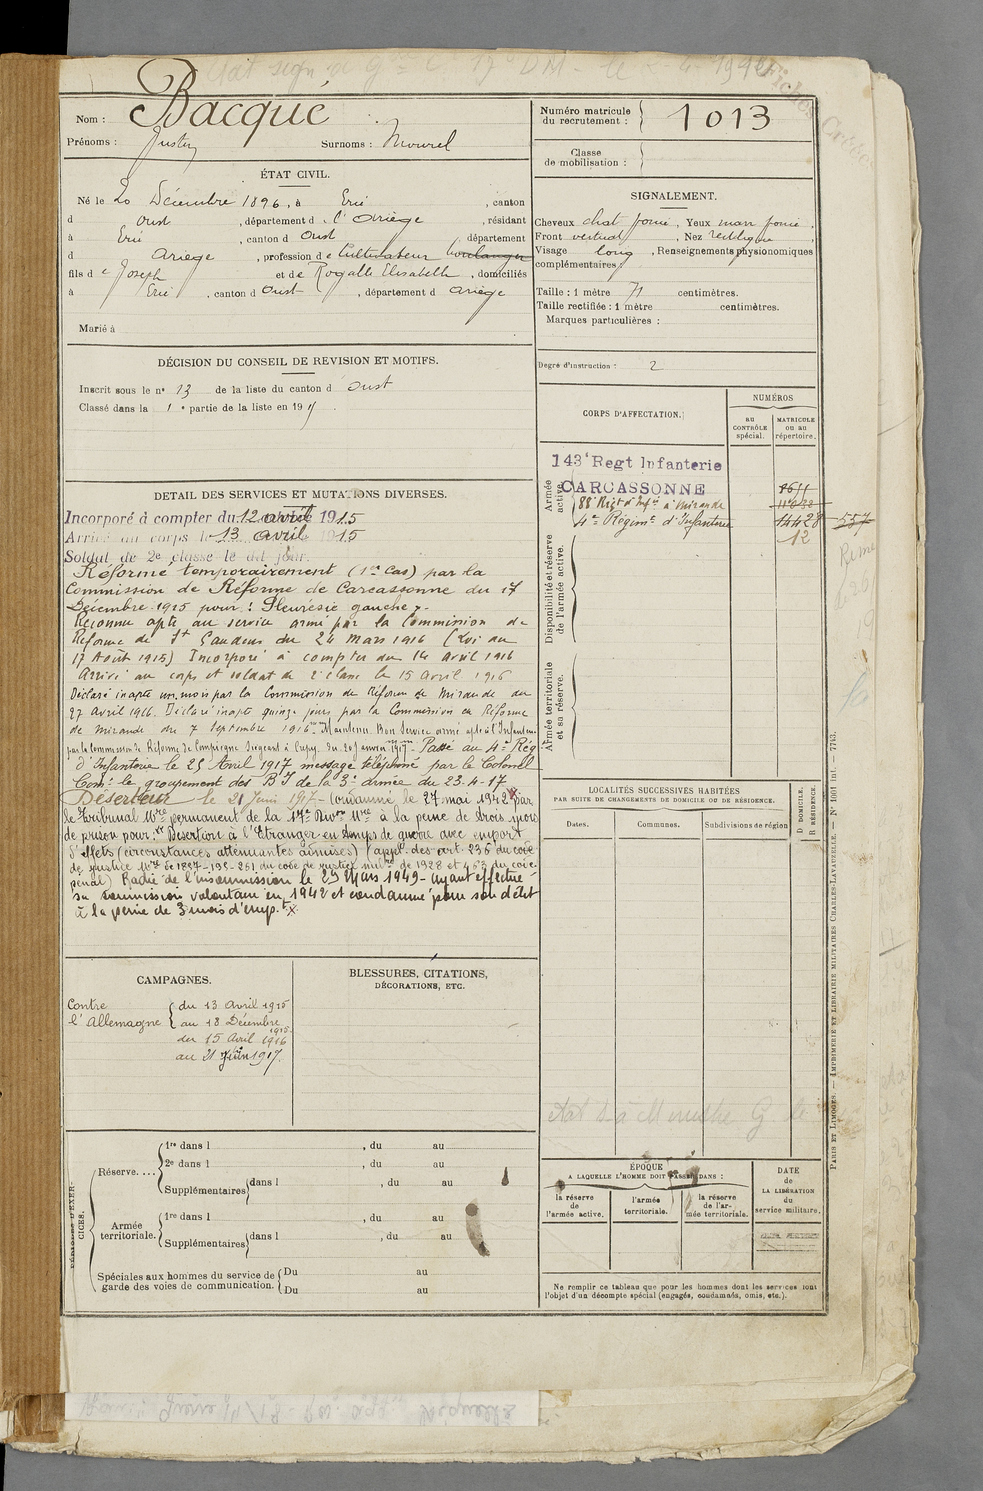 Nom : Bacqué
Prénoms : Justin Surnoms : Mourel
Numéro matricule du recrutement : 1013
Classe de mobilisation :
ÉTAT CIVIL.
Né le 20 Décembre 1896, à Ercé, canton
d Oust, département d l'Ariège, résidant
à Ercé, canton d Oust département
d Ariège, profession de Cultivateur boulanger
fils de Joseph et de Rogalle Elisabeth, domiciliés
à Ercé, canton d Oust, département d Ariège
Marié à
SIGNALEMENT.
Cheveux chat foncé, Yeux marr foncé,
Front vertical, Nez rectiligne
Visage long, Renseignements physionomiques
complémentaires
Taille : 1 mètre 71 centimètres.
Taille rectifiée : 1 mètre centimètres.
Marques particulières :
Degré d'instruction : 2
DÉCISION DU CONSEIL DE REVISION ET MOTIFS.
Inscrit sous le nº 13 de la liste du canton d Oust
Classé dans la 1e partie de la liste en 1917
CORPS D'AFFECTATION.
NUMÉROS
AU CONTRÔLE spécial.
MATRICULE ou au répertoire.
Armée active.
143e Regt Infanterie
CARCASSONNE
88 Regt d'Infie à Mirande
4e Régimt d'Infanterie
14428
12
557
Disponibilité et réserve de l'armée active.
Armée territoriale et sa réserve.
DETAIL DES SERVICES ET MUTATIONS DIVERSES.
Incorporé à compter du 12 avril 1915
Arrivé au corps le 13 avril 1915
Soldat de 2e classe le dit jour
Réformé temporairement (1er Cas) par la
Commission de Réforme de Carcassonne du 17
Décembre 1915 pour : Pleurésie gauche.
Reconnu apte au service armé par la Commission de
Réforme de St Gaudens du 24 Mars 1916 (Loi du
17 Août 1915) Incorporé à compter du 14 avril 1916
Arrivé au corps et soldat de 2e classe le 15 avril 1916
Déclaré inapte un mois par la Commission de Réforme de Mirande du
27 avril 1916. Déclaré inapte quinze jours par la Commission de Réforme
de Mirande du 7 Septembre 1916. Maintenu Bon Service armé apte à l'Infanterie
par la Commission de Réforme de Compiègne siégeant à Cupy. du 20 janvier 1917 - Passé au 4e Rég
d'Infanterie le 25 Avril 1917 message téléphoné par le Colonel
Comt le groupement des B I de la 3e armée du 23-4-17
Déserteur le 21 Juin 1917 - Condamné le 27 mai 1942 par
le Tribunal Mre permanent de la 17e Divon Mre à la peine de trois mois
de prison pour "Desertion à l'Etranger en temps de guerre avec emport
d'effets (circonstances atténuantes admises) (appl. des art. 236 du code
de justice Mre de 1857-195-251 du code de justice milre de 1928 et 463 du code
pénal) Radié de l'insoumission le 29 Mars 1949 - ayant effectué
sa soumission volontaire en 1942 et condamné pour son délit
à la peine de 3 mois d'emp.t
LOCALITÉS SUCCESSIVES HABITÉES
PAR SUITE DE CHANGEMENTS DE DOMICILE OU DE RÉSIDENCE.
Dates. Communes. Subdivisions de région
D DOMICILE. R RÉSIDENCE.
CAMPAGNES.
Contre l'Allemagne
du 13 Avril 1915
au 18 Décembre 1915
du 15 Avril 1916
au 21 Juin 1917.
BLESSURES, CITATIONS,
DÉCORATIONS, ETC.
PÉRIODES D'EXERCICES.
Réserve....
1re dans l , du au
2e dans l , du au
Supplémentaires dans l , du au
Armée territoriale.
1re dans l , du au
Supplémentaires dans l , du au
Spéciales aux hommes du service de garde des voies de communication.
Du au
Du au
ÉPOQUE
A LAQUELLE L'HOMME DOIT PASSER DANS :
la réserve de l'armée active.
l'armée territoriale.
la réserve de l'armée territoriale.
DATE de LA LIBÉRATION du service militaire.
Ne remplir ce tableau que pour les hommes dont les services sont
l'objet d'un décompte spécial (engagés, condamnés, omis, etc.).
PARIS ET LIMOGES. — IMPRIMERIE ET LIBRAIRIE MILITAIRES CHARLES-LAVAUZELLE. — Nº 1061 int. — 7743.